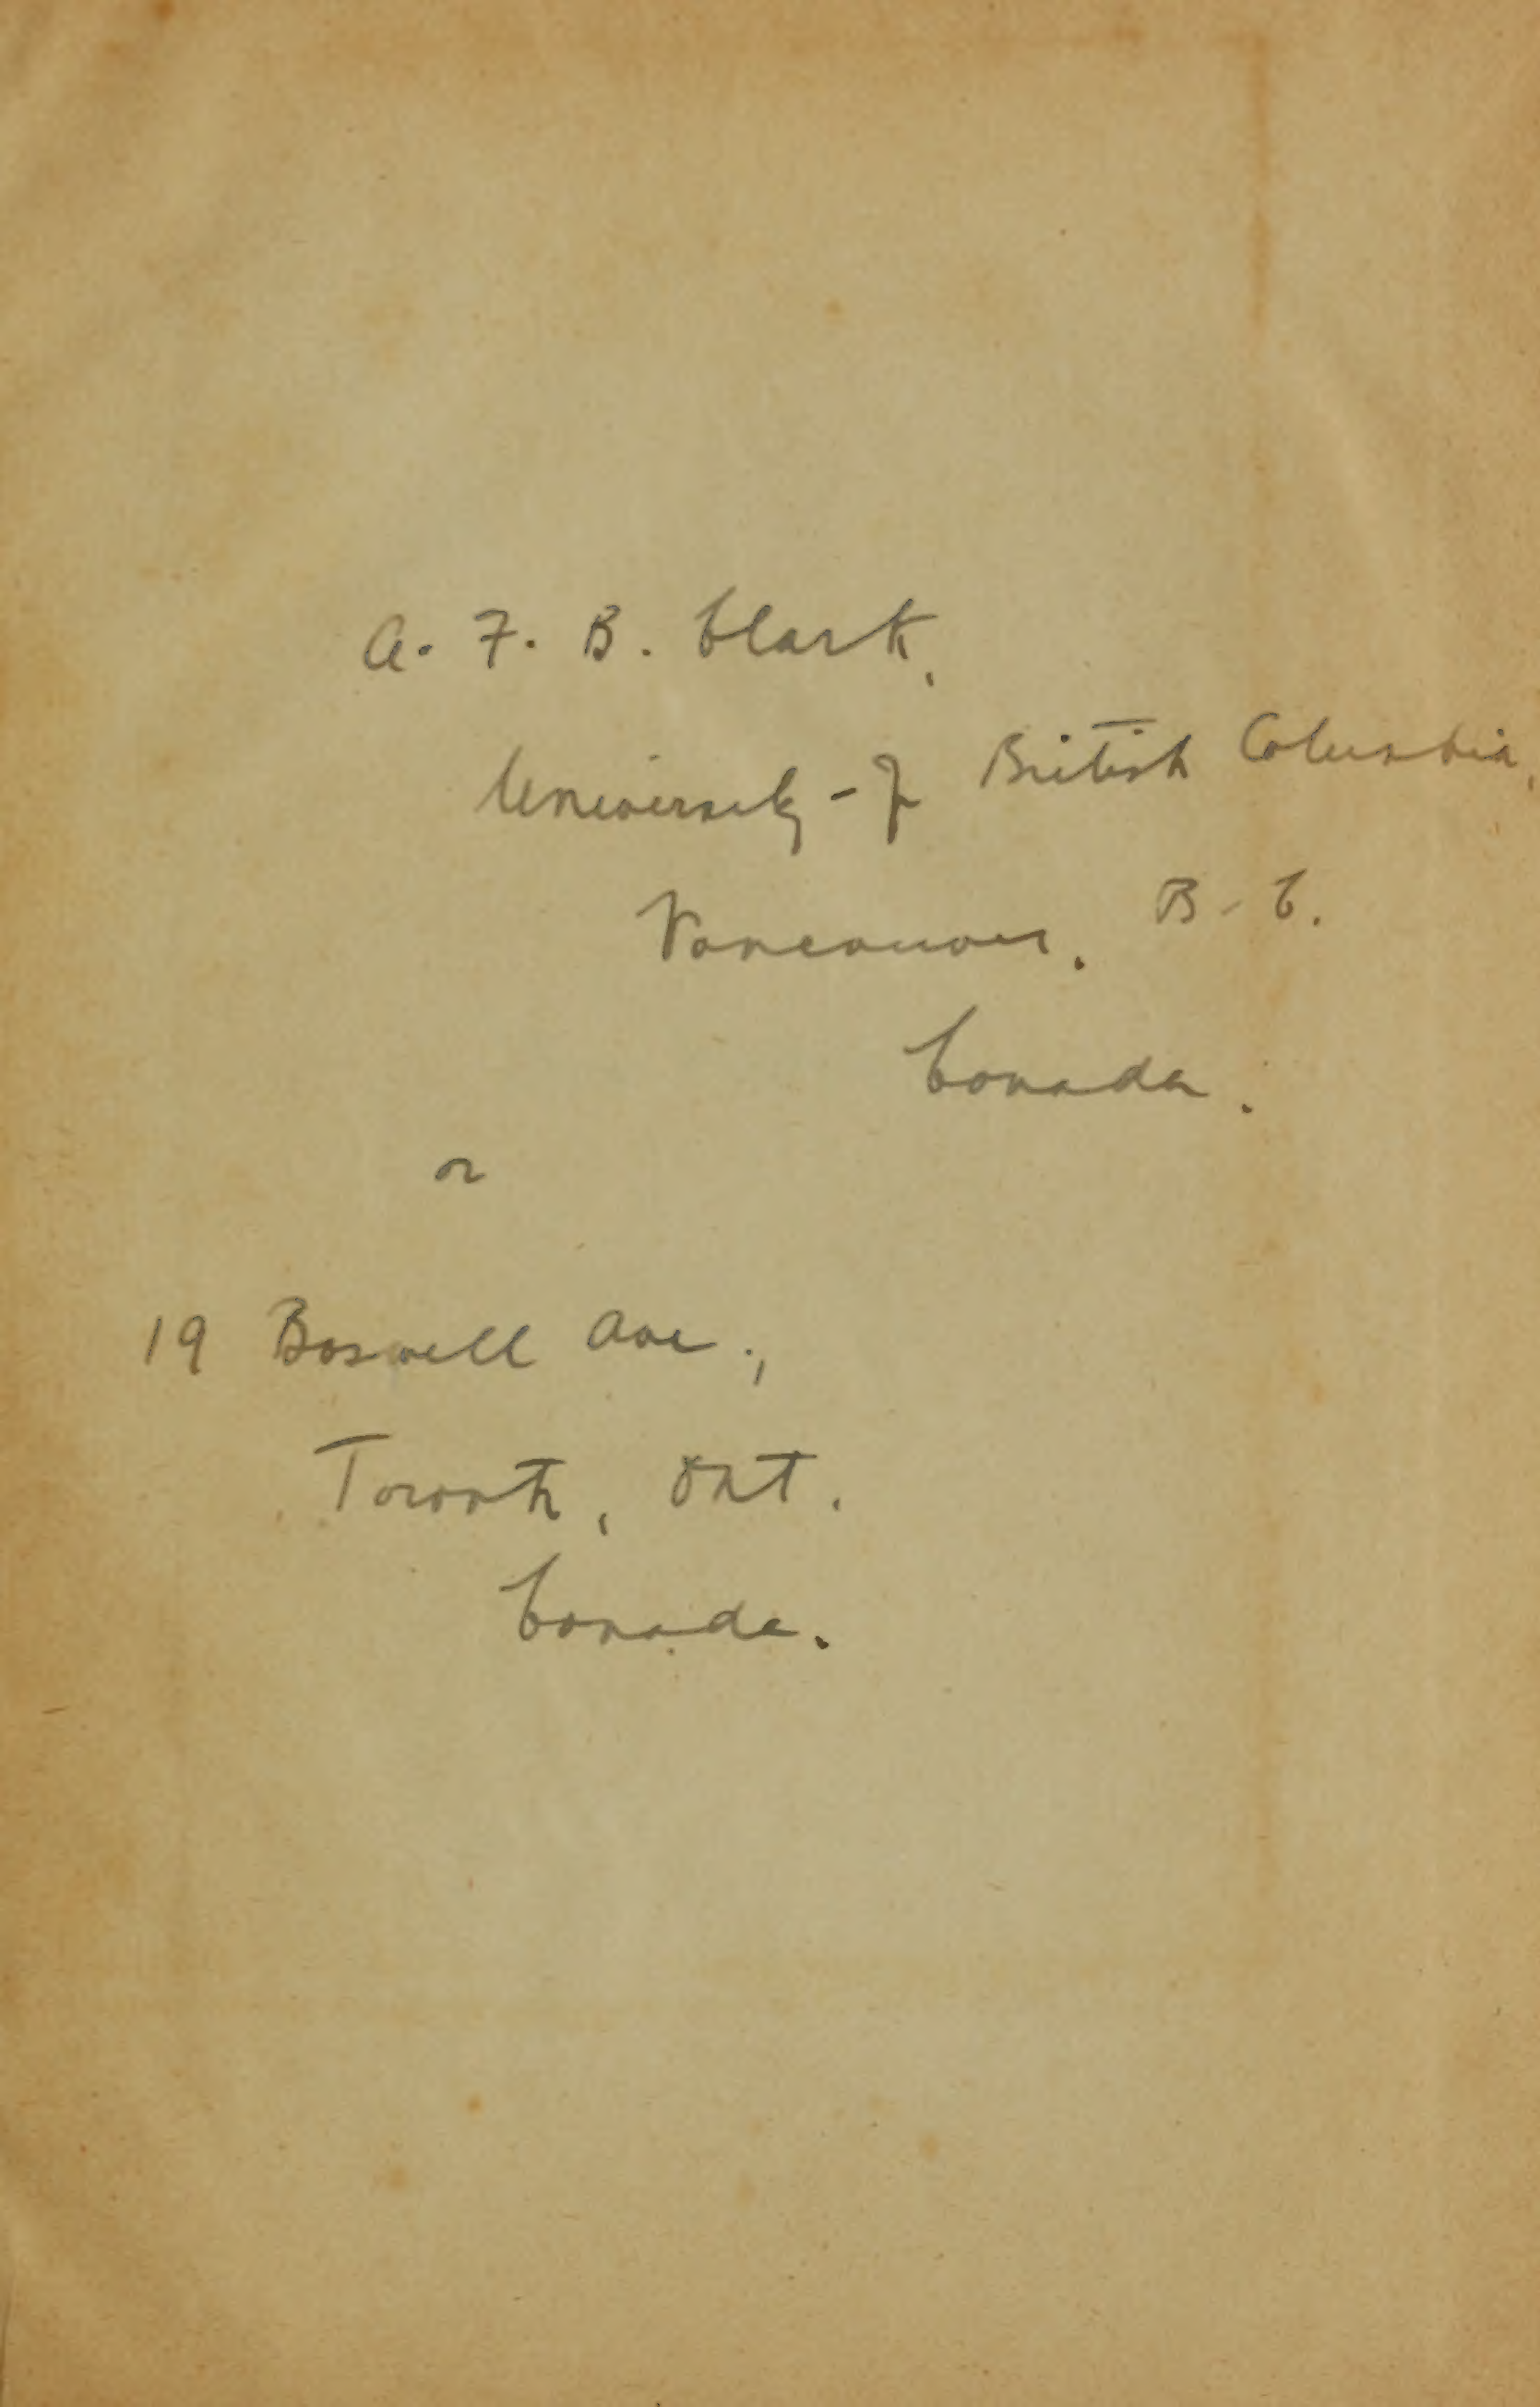 A. F. B. Clark,
University of British Columbia,
Vancouver, B.C.
Canada.
or
19 Boswell Ave.,
Toronto, Ont.
Canada.